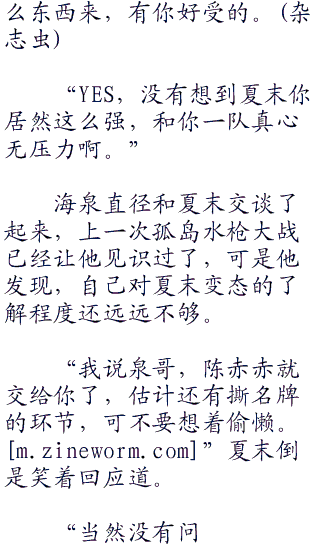 么东西来，有你好受的。(杂
志虫)
“YES，没有想到夏末你
居然这么强，和你一队真心
无压力啊。”
海泉直径和夏末交谈了
起来，上一次孤岛水枪大战
已经让他见识过了，可是他
发现，自己对夏末变态的了
解程度还远远不够。
“我说泉哥，陈赤赤就
交给你了，估计还有撕名牌
的环节，可不要想着偷懒。
[m.zineworm.com]”夏末倒
是笑着回应道。
“当然没有问